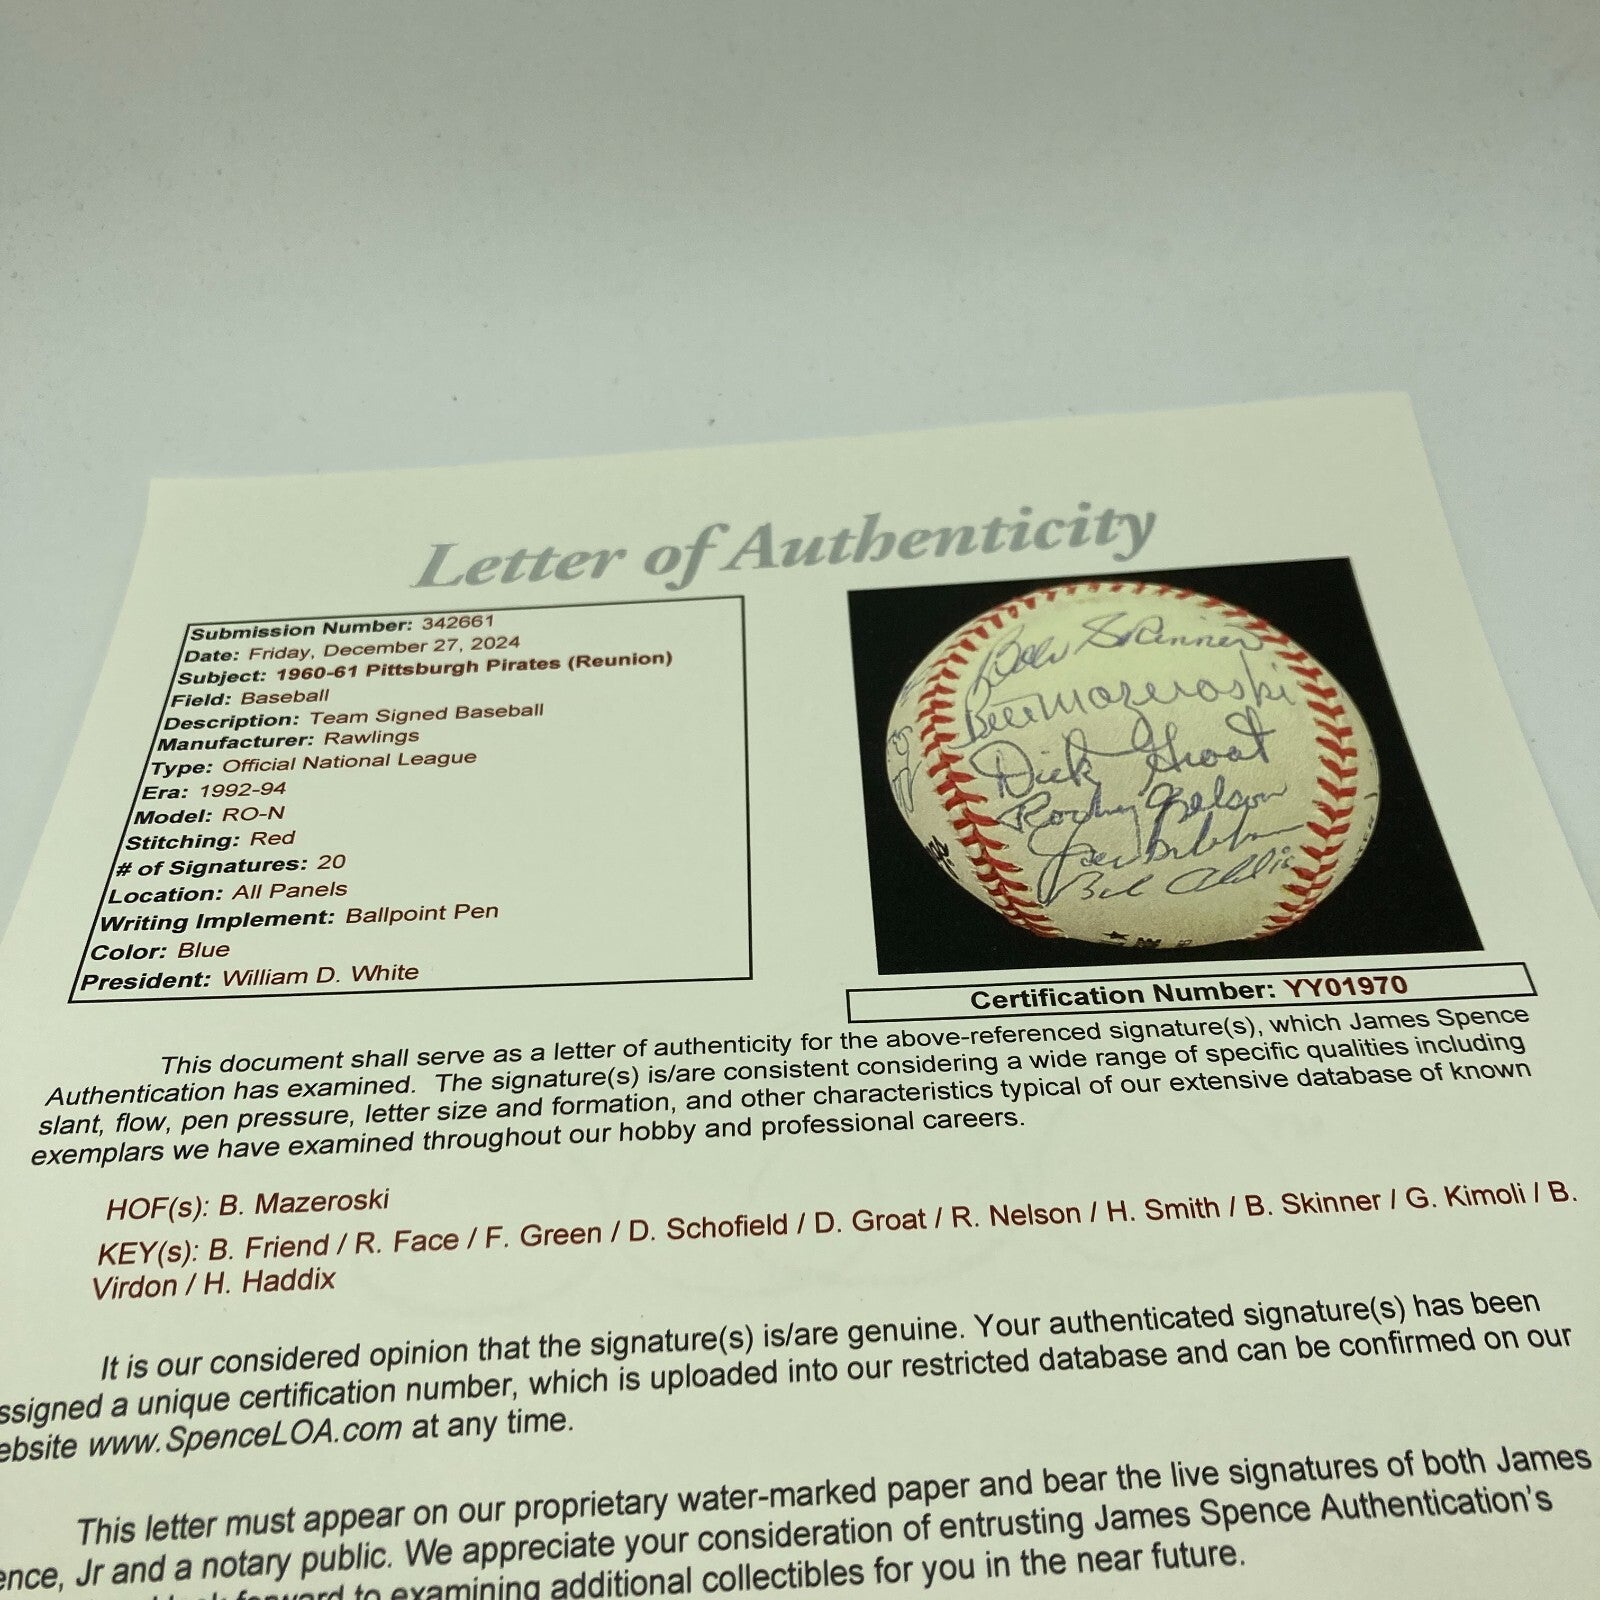 Letter of Authenticity
Submission Number: 342661
Date: Friday, December 27, 2024
Subject: 1960-61 Pittsburgh Pirates (Reunion)
Field: Baseball
Description: Team Signed Baseball
Manufacturer: Rawlings
Type: Official National League
Era: 1992-94
Model: RO-N
Stitching: Red
# of Signatures: 20
Location: All Panels
Writing Implement: Ballpoint Pen
Color: Blue
President: William D. White
Bob Skinner
Bill Mazeroski
Dick Groat
Rocky Nelson
Joe
Bob
Certification Number: YY01970
This document shall serve as a letter of authenticity for the above-referenced signature(s), which James Spence
Authentication has examined. The signature(s) is/are consistent considering a wide range of specific qualities including
slant, flow, pen pressure, letter size and formation, and other characteristics typical of our extensive database of known
exemplars we have examined throughout our hobby and professional careers.
HOF(s): B. Mazeroski
KEY(s): B. Friend / R. Face / F. Green / D. Schofield / D. Groat / R. Nelson / H. Smith / B. Skinner / G. Kimoli / B.
Virdon / H. Haddix
It is our considered opinion that the signature(s) is/are genuine. Your authenticated signature(s) has been
ssigned a unique certification number, which is uploaded into our restricted database and can be confirmed on our
ebsite www.SpenceLOA.com at any time.
This letter must appear on our proprietary water-marked paper and bear the live signatures of both James
ence, Jr and a notary public. We appreciate your consideration of entrusting James Spence Authentication's
forward to examining additional collectibles for you in the near future.